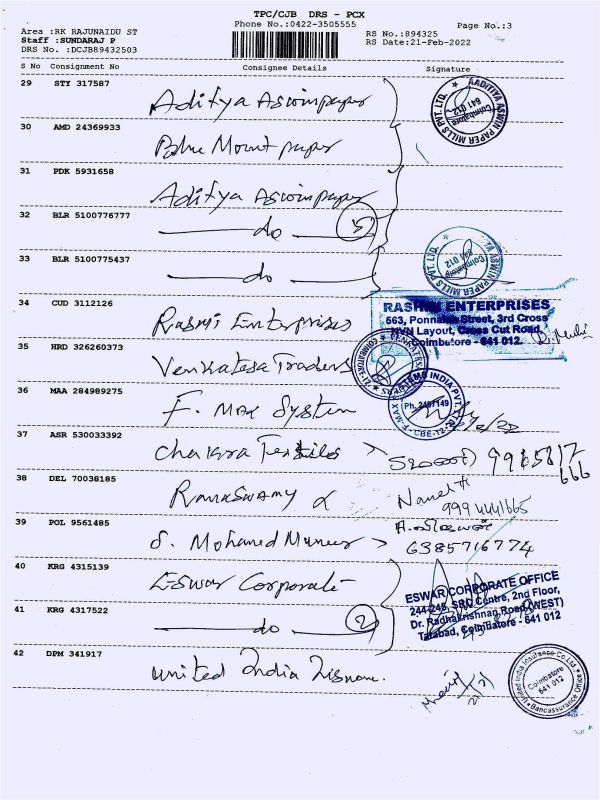 TPC/CJB DRS - PCX
Phone No.:0422-3505555
Page No.:3
Area :RK RAJUNAIDU ST
Staff :SUNDARAJ P
DRS No. :DCJB89432503
RS No.:894325
RS Date:21-Feb-2022
S No Consignment No Consignee Details Signature
29 STY 317587 Aditya Aswinpaper
AADITYA ASWIN PAPER MILLS PVT. LTD. Coimbatore 641 012
30 AMD 24369933 Blue Mount paper
31 PDK 5931658 Aditya Aswinpaper
32 BLR 5100776777 do 5
33 BLR 5100775437 do
YA ASWIN PAPER MILLS PVT. LTD. Coimbatore 641 012
34 CUD 3112126 Rashmi Enterprises
RASHMI ENTERPRISES
563, Ponnaiya Street, 3rd Cross
NVN Layout, Cross Cut Road,
Coimbatore - 641 012.
35 HRD 326260373 Venkatesa Traders
36 MAA 284989275 F. Max System
F-MAX SYSTEMS INDIA PVT. LTD. Ph. 2497149 CBE-12
37 ASR 530033392 Chakra Textiles
38 DEL 70038185 Ramaswamy
9994441665
39 POL 9561485 S. Mohamed Muneer
6385716774
40 KRG 4315139 Eswar Corporate
ESWAR CORPORATE OFFICE
244-245, SRC Centre, 2nd Floor,
Dr. Radhakrishnan Road (WEST)
Tatabad, Coimbatore - 641 012
41 KRG 4317522 do 2
42 DPM 341917 United India
United India Insurance Co.Ltd. Coimbatore 641 012 Bancassurance Office